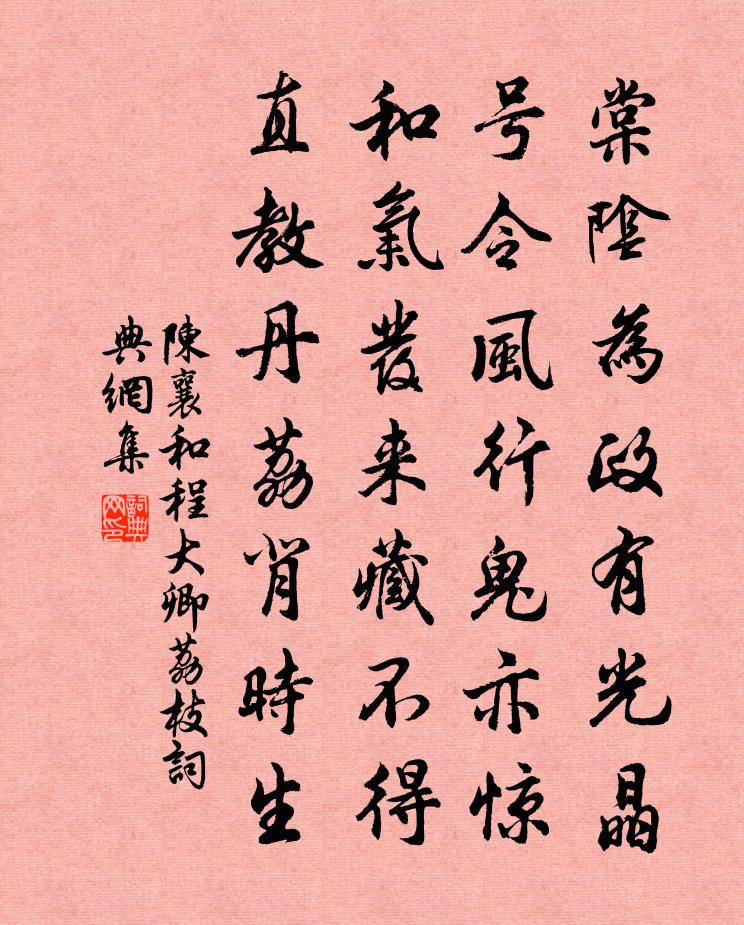 棠陰為政有光晶
号令風行鬼亦惊
和氣發来藏不得
直教丹荔背時生
陳襄和程大卿荔枝詞
典網集
詞典网印